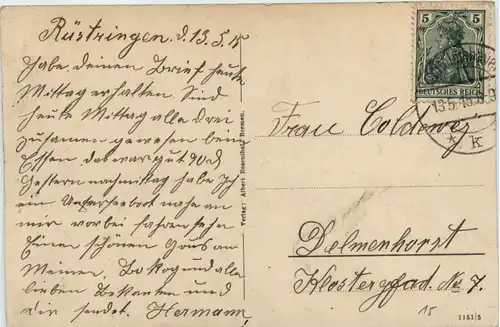 Rüstringen d. 13. 5. 15
Habe deinen Brief heute
Mittag erhalten Sind
heute Mittag alle drei
zusamen gewesen beim
Essen das war gut
Gestern nachmittag habe Ich
ein Unterseebot nahe an
mir vorbei fahren sehn
Einen schönen Grus an
Meinen und alle
lieben Bekanten und
dir sendet. Hermann
Verlag: Albert Rosenthal, Bremen.
5 5
DEUTSCHES REICH
13.5.15
* k
Frau Coldewey
Delmenhorst
Klosterpfad. No 7.
15
1151/5